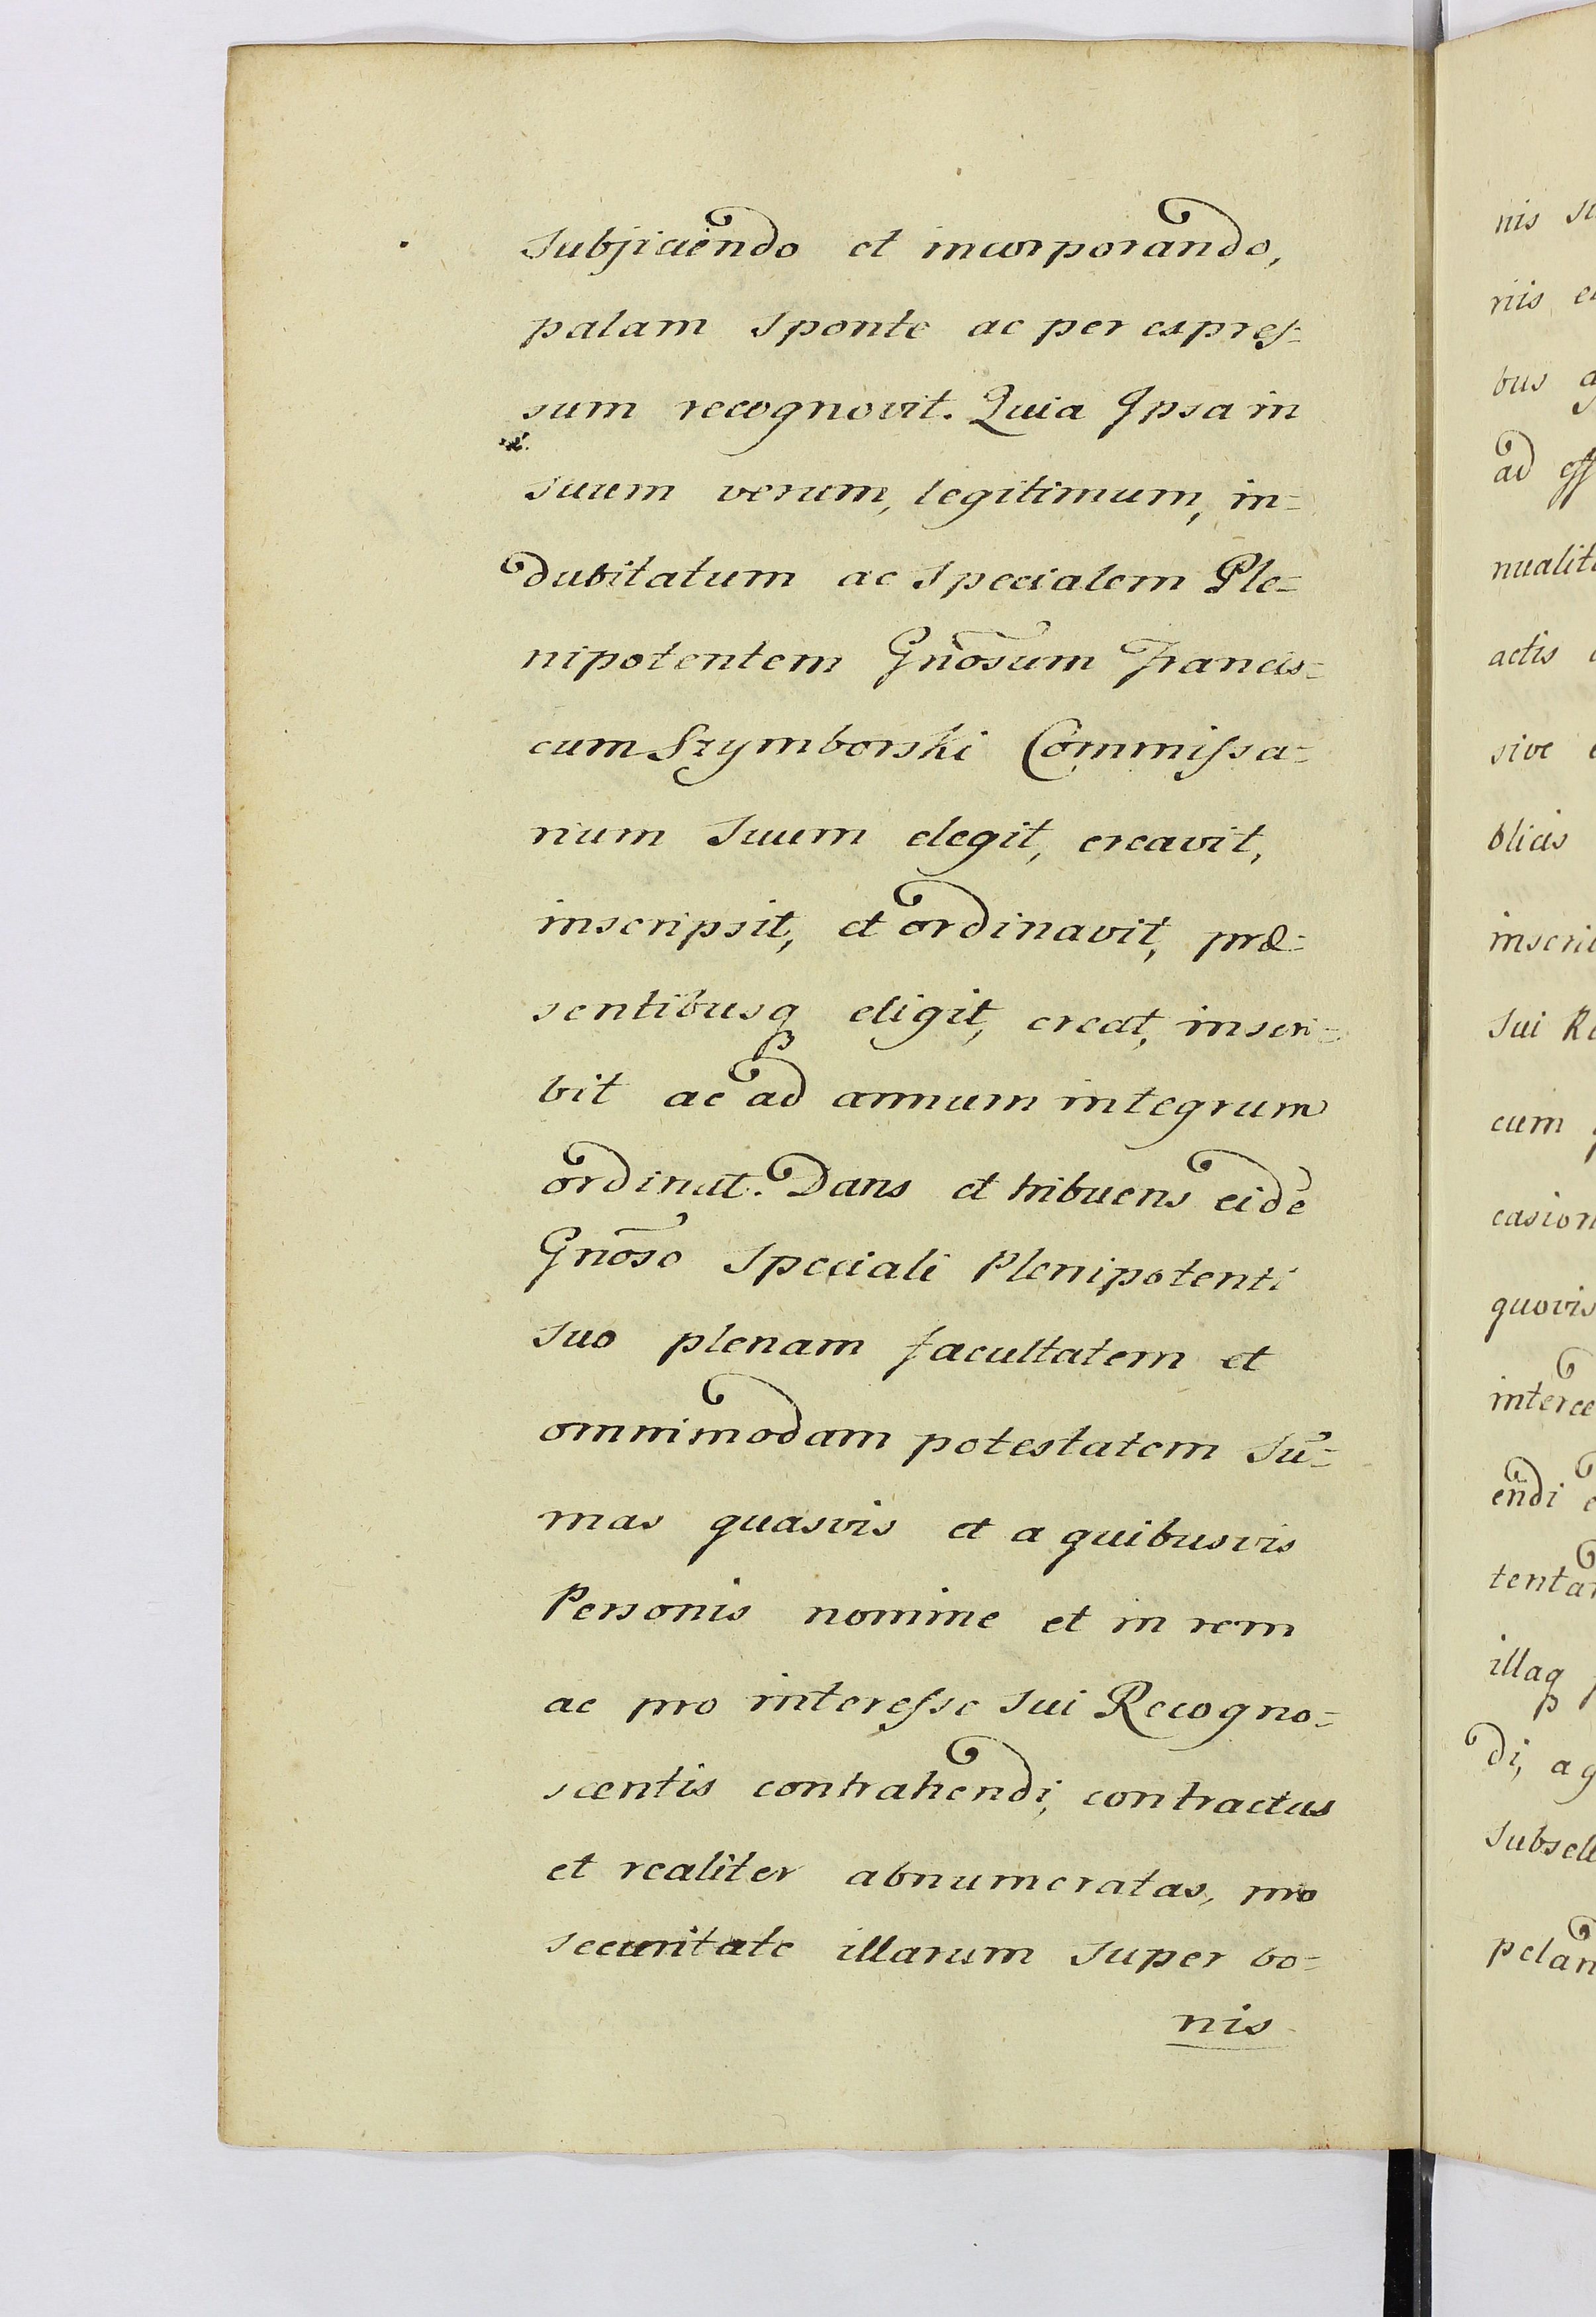 subjiciendo et incorporando,
palam sponte ac per expres-
sum recognovit. Quia Ipsa in
suum verum, legitimum, in=
dubitatum ac specialem Ple=
nipotentem Gnõsum Francis=
cum Szymborski Commissa=
rium suum elegit, creavit,
inscripsit, et ordinavit, præ=
sentibusq eligit, creat, inscri=
bit ac ad annum integrum
ordinat. Dans et tribuens eidē
Gnõso speciali Plenipotenti
suo plenam facultatem et
omnimodam potestatem su̅=
mas quasvis et a quibusvis
Personis nomine et in rem
ac pro interesse sui Recogno=
scentis contrahendi, contractas
et realiter abnumeratas, pro
securitate illarum super bo=
nis
nis
riis
bus
ad
actis
sive
blicis
sui
cum
quovis
endi
illaq
di, a